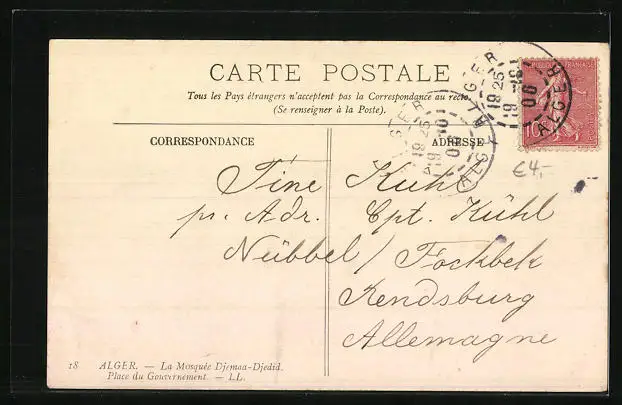 CARTE POSTALE
Tous les Pays étrangers n'acceptent pas la Correspondance au recto.
(Se renseigner à la Poste).
CORRESPONDANCE
ADRESSE
ALGER
19 25
ALGER
ALGER
19 25
ALGER
10
€4,-
Tine Kühl
pr. Adr. Cpt. Kühl
Nübbel / Fockbek
Rendsburg
Allemagne
18 ALGER. — La Mosquée Djemaa-Djedid.
Place du Gouvernement. — LL.